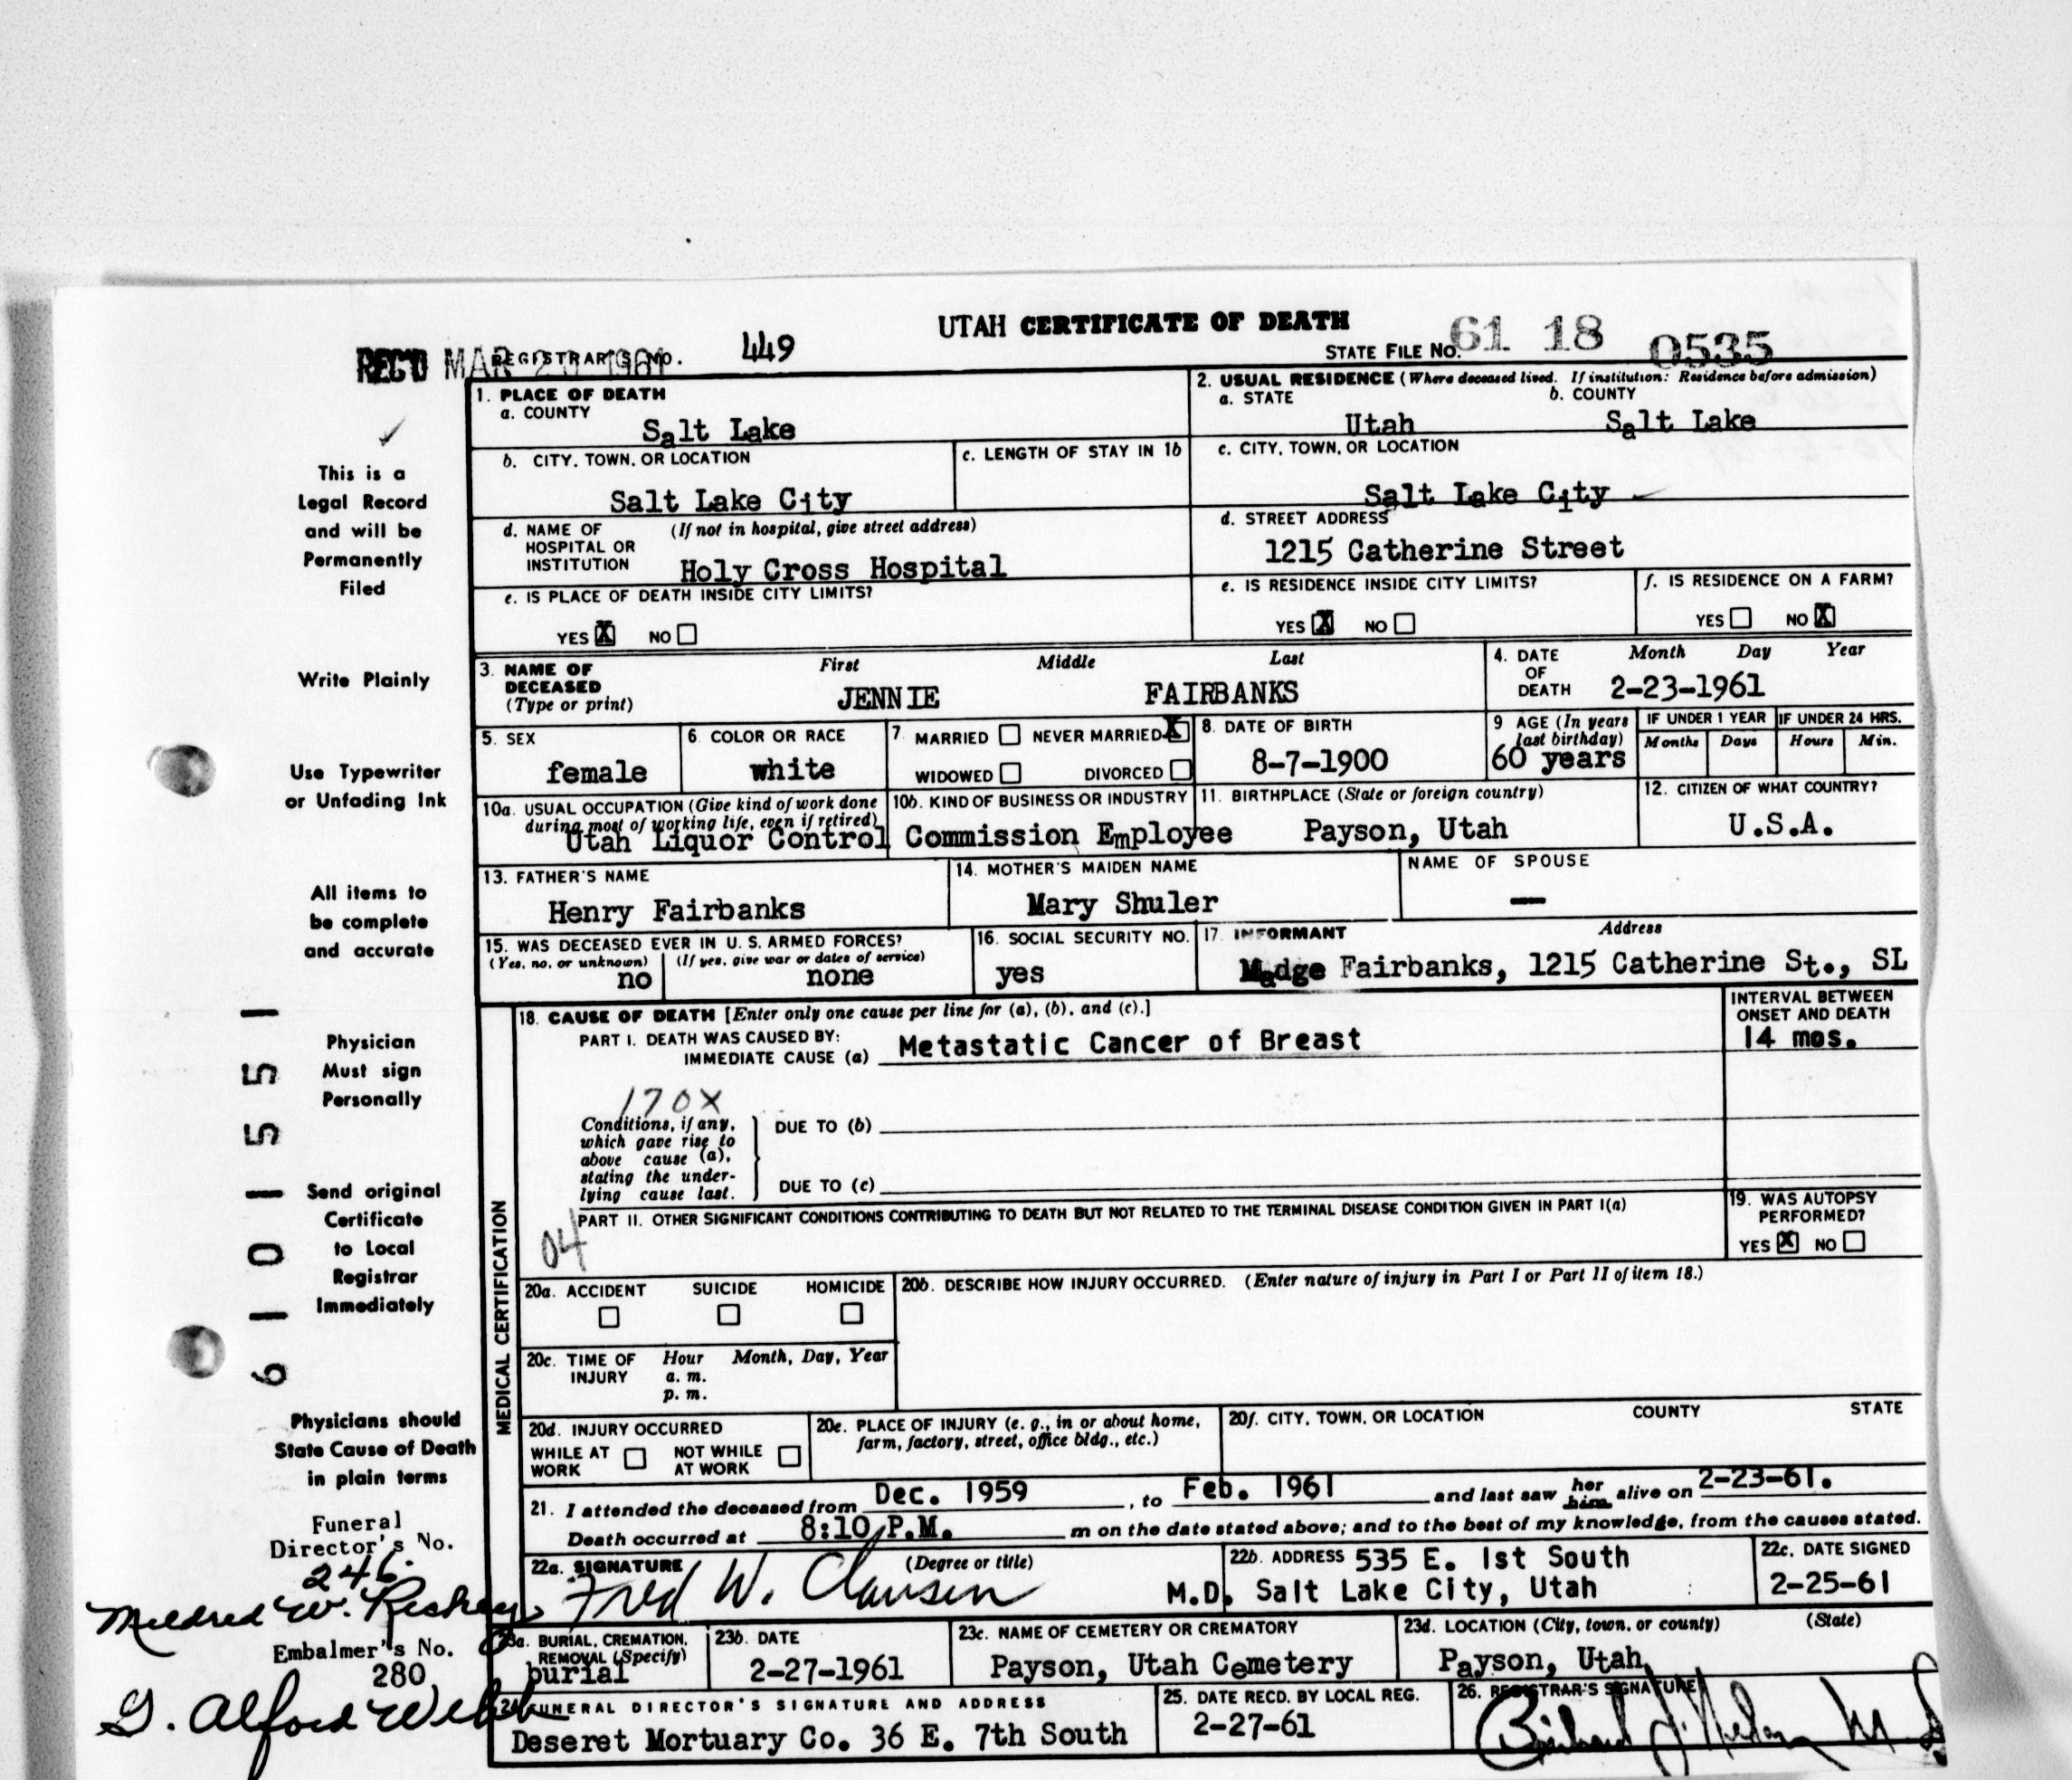 UTAH CERTIFICATE OF DEATH
REC'D MAR 20 1961 REGISTRAR'S NO. 449
STATE FILE NO. 61 18 0535
1. PLACE OF DEATH
a. COUNTY
Salt Lake
2. USUAL RESIDENCE (Where deceased lived. If institution: Residence before admission)
a. STATE b. COUNTY
Utah Salt Lake
b. CITY, TOWN, OR LOCATION
Salt Lake City
c. LENGTH OF STAY IN 1b
c. CITY, TOWN, OR LOCATION
Salt Lake City
d. NAME OF (If not in hospital, give street address)
HOSPITAL OR
INSTITUTION Holy Cross Hospital
d. STREET ADDRESS
1215 Catherine Street
e. IS PLACE OF DEATH INSIDE CITY LIMITS?
YES X NO
e. IS RESIDENCE INSIDE CITY LIMITS?
YES X NO
f. IS RESIDENCE ON A FARM?
YES NO X
3. NAME OF First Middle Last
DECEASED
(Type or print) JENNIE FAIRBANKS
4. DATE Month Day Year
OF
DEATH 2-23-1961
5. SEX
female
6. COLOR OR RACE
white
7. MARRIED NEVER MARRIED X
WIDOWED DIVORCED
8. DATE OF BIRTH
8-7-1900
9 AGE (In years
last birthday)
60 years
IF UNDER 1 YEAR IF UNDER 24 HRS.
Months Days Hours Min.
10a. USUAL OCCUPATION (Give kind of work done
during most of working life, even if retired)
10b. KIND OF BUSINESS OR INDUSTRY
Utah Liquor Control Commission Employee
11. BIRTHPLACE (State or foreign country)
Payson, Utah
12. CITIZEN OF WHAT COUNTRY?
U.S.A.
13. FATHER'S NAME
Henry Fairbanks
14. MOTHER'S MAIDEN NAME
Mary Shuler
NAME OF SPOUSE
—
15. WAS DECEASED EVER IN U. S. ARMED FORCES?
(Yes, no, or unknown) (If yes, give war or dates of service)
no none
16. SOCIAL SECURITY NO.
yes
17. INFORMANT Address
Madge Fairbanks, 1215 Catherine St., SL
MEDICAL CERTIFICATION
18. CAUSE OF DEATH [Enter only one cause per line for (a), (b), and (c).]
PART I. DEATH WAS CAUSED BY:
IMMEDIATE CAUSE (a) Metastatic Cancer of Breast
INTERVAL BETWEEN
ONSET AND DEATH
14 mos.
170X
Conditions, if any,
which gave rise to
above cause (a),
stating the under-
lying cause last.
DUE TO (b)
DUE TO (c)
PART II. OTHER SIGNIFICANT CONDITIONS CONTRIBUTING TO DEATH BUT NOT RELATED TO THE TERMINAL DISEASE CONDITION GIVEN IN PART I(a)
04
19. WAS AUTOPSY
PERFORMED?
YES X NO
20a. ACCIDENT SUICIDE HOMICIDE
20b. DESCRIBE HOW INJURY OCCURRED. (Enter nature of injury in Part I or Part II of item 18.)
20c. TIME OF Hour Month, Day, Year
INJURY a. m.
p. m.
20d. INJURY OCCURRED
WHILE AT NOT WHILE
WORK AT WORK
20e. PLACE OF INJURY (e. g., in or about home,
farm, factory, street, office bldg., etc.)
20f. CITY, TOWN, OR LOCATION COUNTY STATE
21. I attended the deceased from Dec. 1959, to Feb. 1961 and last saw her him alive on 2-23-61.
Death occurred at 8:10 P.M. m on the date stated above; and to the best of my knowledge, from the causes stated.
22a. SIGNATURE (Degree or title)
Fred W. Clausen M.D.
22b. ADDRESS 535 E. 1st South
Salt Lake City, Utah
22c. DATE SIGNED
2-25-61
23a. BURIAL, CREMATION,
REMOVAL (Specify)
burial
23b. DATE
2-27-1961
23c. NAME OF CEMETERY OR CREMATORY
Payson, Utah Cemetery
23d. LOCATION (City, town, or county) (State)
Payson, Utah
24 FUNERAL DIRECTOR'S SIGNATURE AND ADDRESS
Deseret Mortuary Co. 36 E. 7th South
25. DATE RECD. BY LOCAL REG.
2-27-61
26. REGISTRAR'S SIGNATURE
This is a
Legal Record
and will be
Permanently
Filed
Write Plainly
Use Typewriter
or Unfading Ink
All items to
be complete
and accurate
Physician
Must sign
Personally
Send original
Certificate
to Local
Registrar
Immediately
Physicians should
State Cause of Death
in plain terms
6 1 0 1 5 5 1
Funeral
Director's No.
246
Mildred W.
Embalmer's No.
280
G. Alford Webb